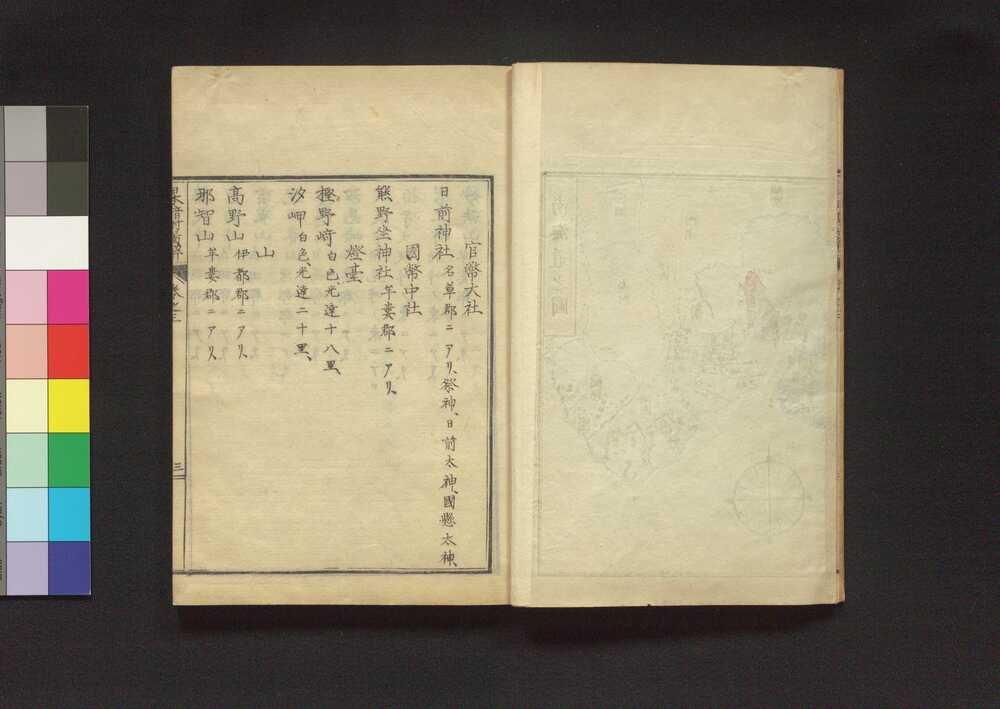 官幣大社
日前神社 名草郡ニアリ、祭神、日前太神、國懸太神、
國幣中社
熊野坐神社 牟婁郡ニアリ、
燈臺
樫野﨑 白色、光達十八里、
汐岬 白色、光達二十里、
山
髙野山 伊都郡ニアリ、
那智山 牟婁郡ニアリ、
三